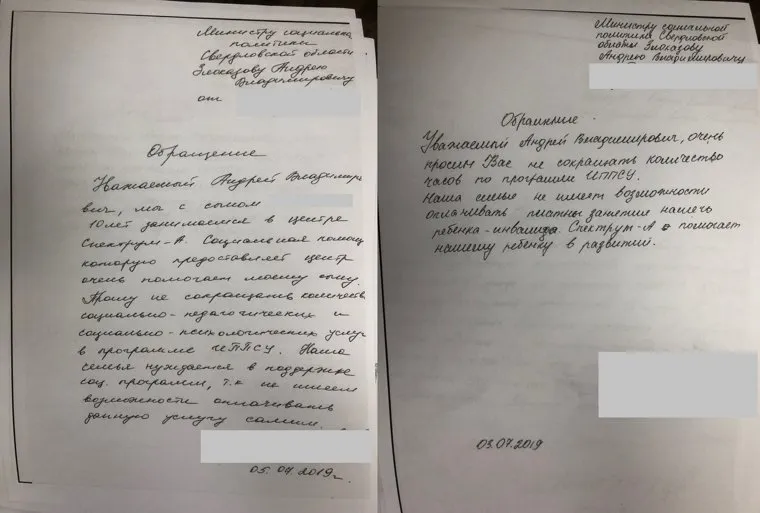 Министру социальной
политики
Свердловской области
Злоказову Андрею
Владимировичу
от
Обращение
Уважаемый Андрей Владимиро
вич, мы с сыном
10 лет занимаемся в центре
Спектрум-А. Социальная помощь
которую предоставляет центр
очень помогает моему сыну.
Прошу не сокращать количество
социально-педагогических и
социально-психологических услуг
в программе ИППСУ. Наша
семья нуждается в поддержке
соц. программ, т.к не имеем
возможности оплачивать
данную услугу самим.
05.07.2019г.
Министру социальной
политики Свердловской
области Злоказову
Андрею Владимировичу
Обращение
Уважаемый Андрей Владимирович, очень
просим Вас не сокращать количество
часов по программе ИППСУ.
Наша семья не имеет возможности
оплачивать платны занятия нашего
ребёнка-инвалида. Спектрум-А помогает
нашему ребёнку в развитии.
03.07.2019